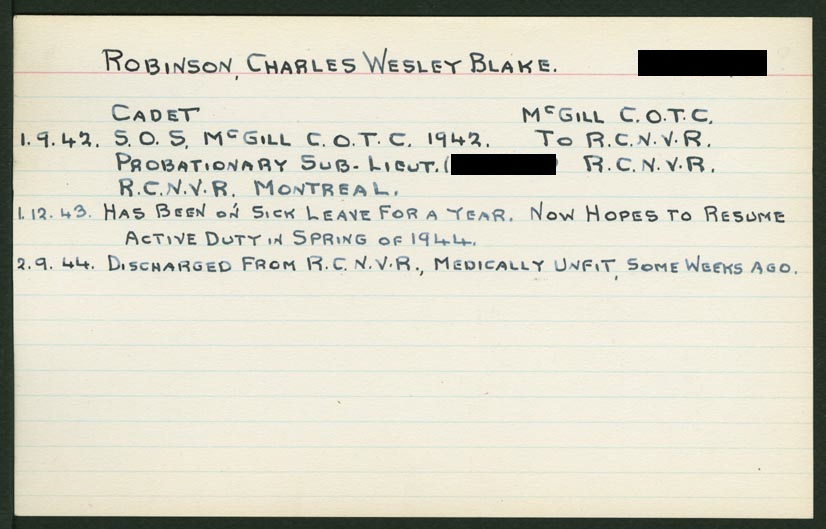 ROBINSON, CHARLES WESLEY BLAKE.
CADET McGILL C.O.T.C.
1.9.42. S.O.S. McGILL C.O.T.C. 1942. TO R.C.N.V.R.
PROBATIONARY SUB-LIEUT. ( ) R.C.N.V.R.
R.C.N.V.R. MONTREAL.
1.12.43. HAS BEEN ON SICK LEAVE FOR A YEAR. NOW HOPES TO RESUME
ACTIVE DUTY IN SPRING OF 1944.
2.9.44. DISCHARGED FROM R.C.N.V.R., MEDICALLY UNFIT, SOME WEEKS AGO.